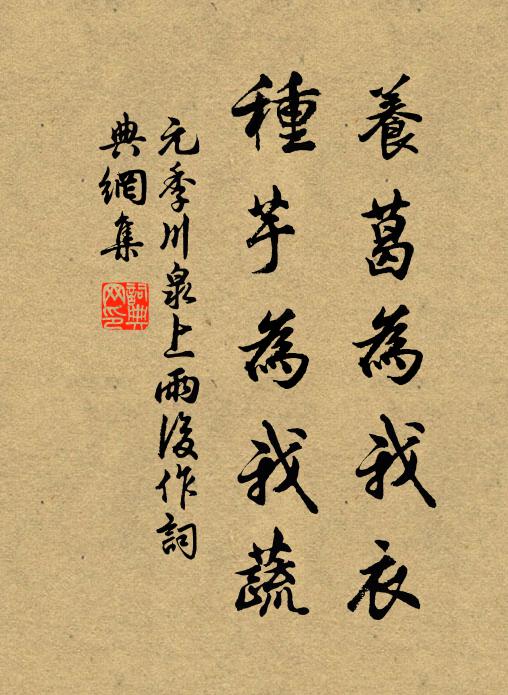 養葛為我衣
種芋為我蔬
元季川泉上雨後作詞
典網集
詞典
网印